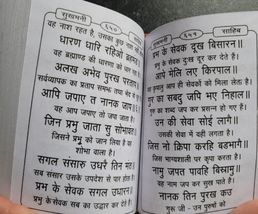 सुखमनी ६५० साहिब
वह नाश रहत है, उसका कुछ
धारण धारि रहिओ ब्रहमंड
वह ब्रह्माण्ड की धारणा को
अलख अभेव पुरख परताप
सर्वव्यापक का प्रताप समझ
आपि जपाए त नानक जाप
वह आप जपाए तो जप जाता है
जिन प्रभु जाता सु सोभावंत
जिसने प्रभु को जान लिया है वह
शोभा वाला है।
सगल संसारु उधरै तिन मंत
सब संसार उसके उपदेश से पार होता है
प्रभ के सेवक सगल उधारन
प्रभु के सेवक सब का उद्धार कर देते हैं
६५१
प्रभ के सेवक दूख बिसारन॥
प्रभु के सेवक दुःख दूर कर देते हैं।
आपे मेलि लए किरपाल॥
कृपालु आप ही सेवकों को मिला लेता है।
गुर का सबदु जपि भए निहाल॥
गुरु का शब्द जप कर प्रसन्न हो गए हैं।
उन की सेवा सोई लागै॥
उसकी सेवा में वही लगता है।
जिस नो क्रिपा करहि बडभागै॥
जिस भाग्यशाली पर कृपा करता है।
नामु जपत पावहि बिस्रामु॥
वह नाम जप कर सुख पाते हैं।
नानक तिन पुरख कउ
गुरु जी - उन पुरुषों को